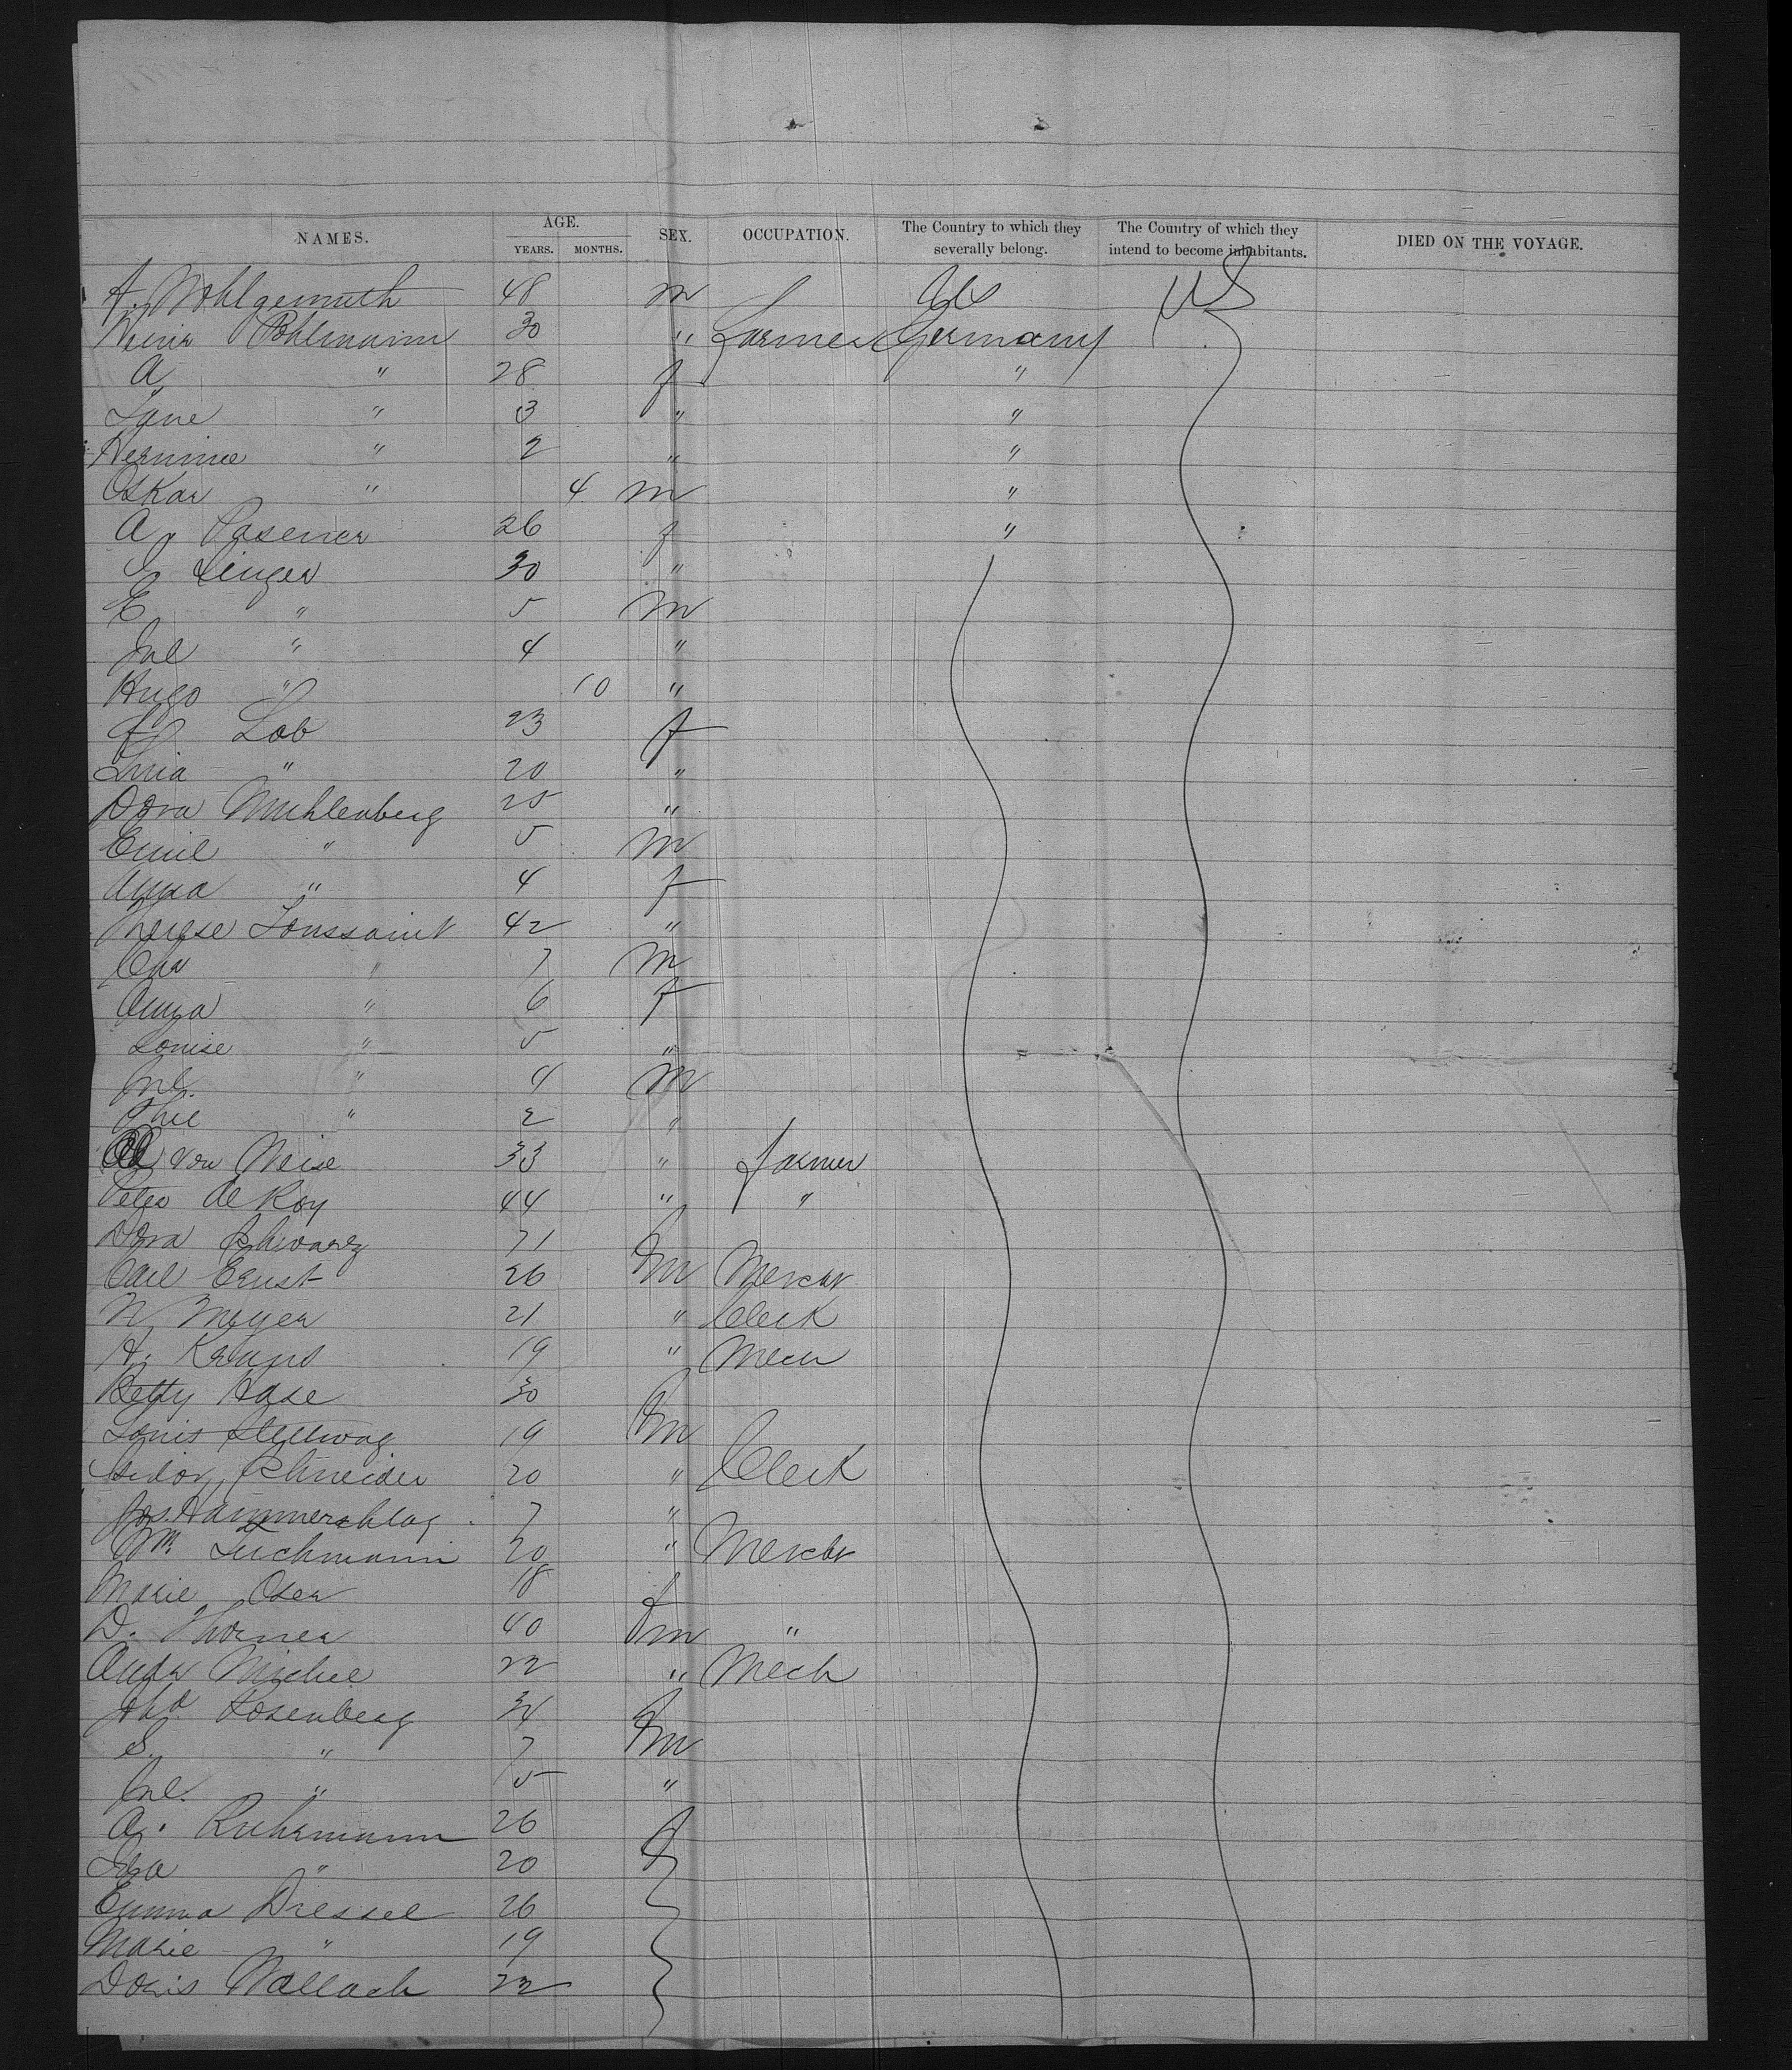 NAMES. AGE. YEARS. MONTHS. SEX. OCCUPATION. The Country to which they severally belong. The Country of which they intend to become inhabitants. DIED ON THE VOYAGE.
A. Wohlgemuth 48 m US US
Heinr Pohlmann 30 " Farmer Germany
A " 28 f "
Line " 3 " "
Hermine " 2 " "
Oskar " 4 m "
A. Posener 26 f "
Singer 30 "
E " 5 m
Jul " 4 "
Hugo " 10 "
Lob 23 f
Lina " 20 "
Dora Muhlenberg 25 "
Emil " 5 m
Anna " 4 f
Therese Toussaint 42 "
Chr " 7 m
Anna " 6 f
Louise " 5 "
Jul. " 4 m
Phil " 2 "
von Weise 33 " farmer
Peter de Roy 44 " "
Dora Schwarz 71 f
Carl Ernst 26 m Mercht
N. Meyer 21 " Clerk
H. Kraus 19 " Mech
Betty Hase 30 f
Louis Stellwag 19 m
Isidor Schneider 20 " Clerk
Jos. Hammerschlag 7 "
Wm. Tuchmann 20 " Mercht
Marie Oser 18 f
D. Thorner 40 m "
Andr Michel 22 " Mech
Rosenberg 34 f
S. " 7 m
Jul. " 5 "
A. Ruhrmann 26 f
Ida " 20 f
Emma Dressel 26
Marie " 19
Doris Wallach 22